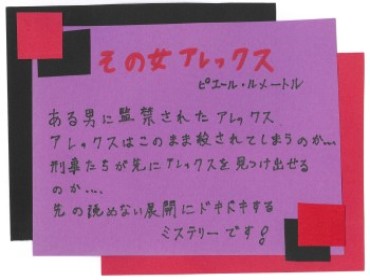 その女アレックス
ピエール・ルメートル
ある男に監禁されたアレックス
アレックスはこのまま殺されてしまうのか…
刑事たちが先にアレックスを見つけ出せる
のか…
先の読めない展開にドキドキする
ミステリーです!